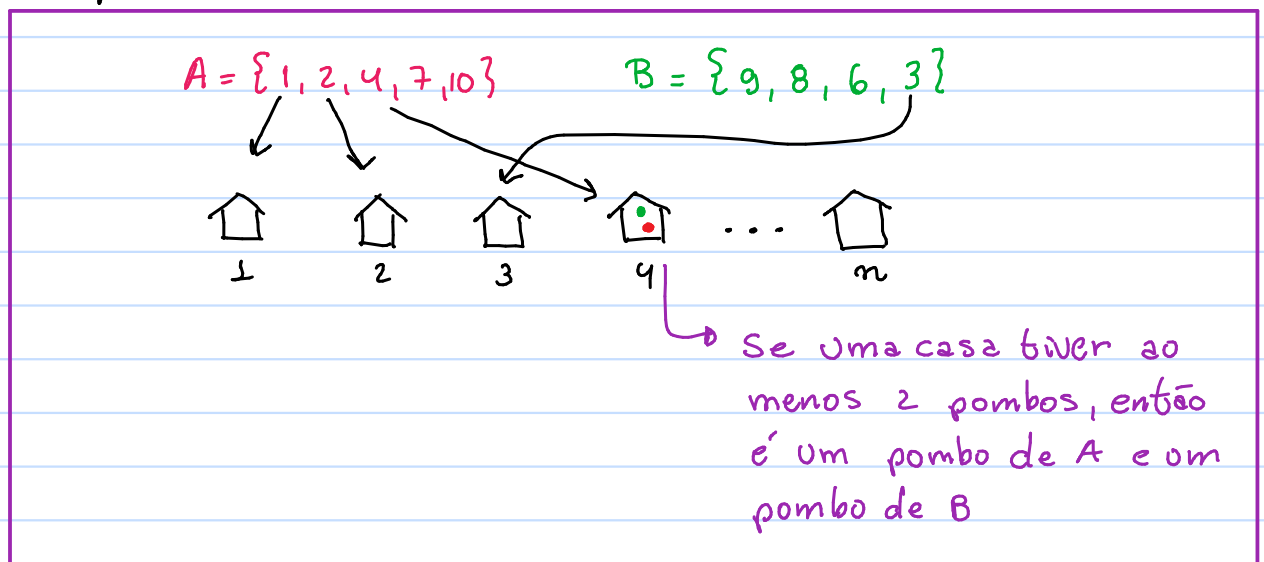 A = {1, 2, 4, 7, 10} B = {9, 8, 6, 3}
1 2 3 4 ... n
Se uma casa tiver ao
menos 2 pombos, então
é um pombo de A e um
pombo de B